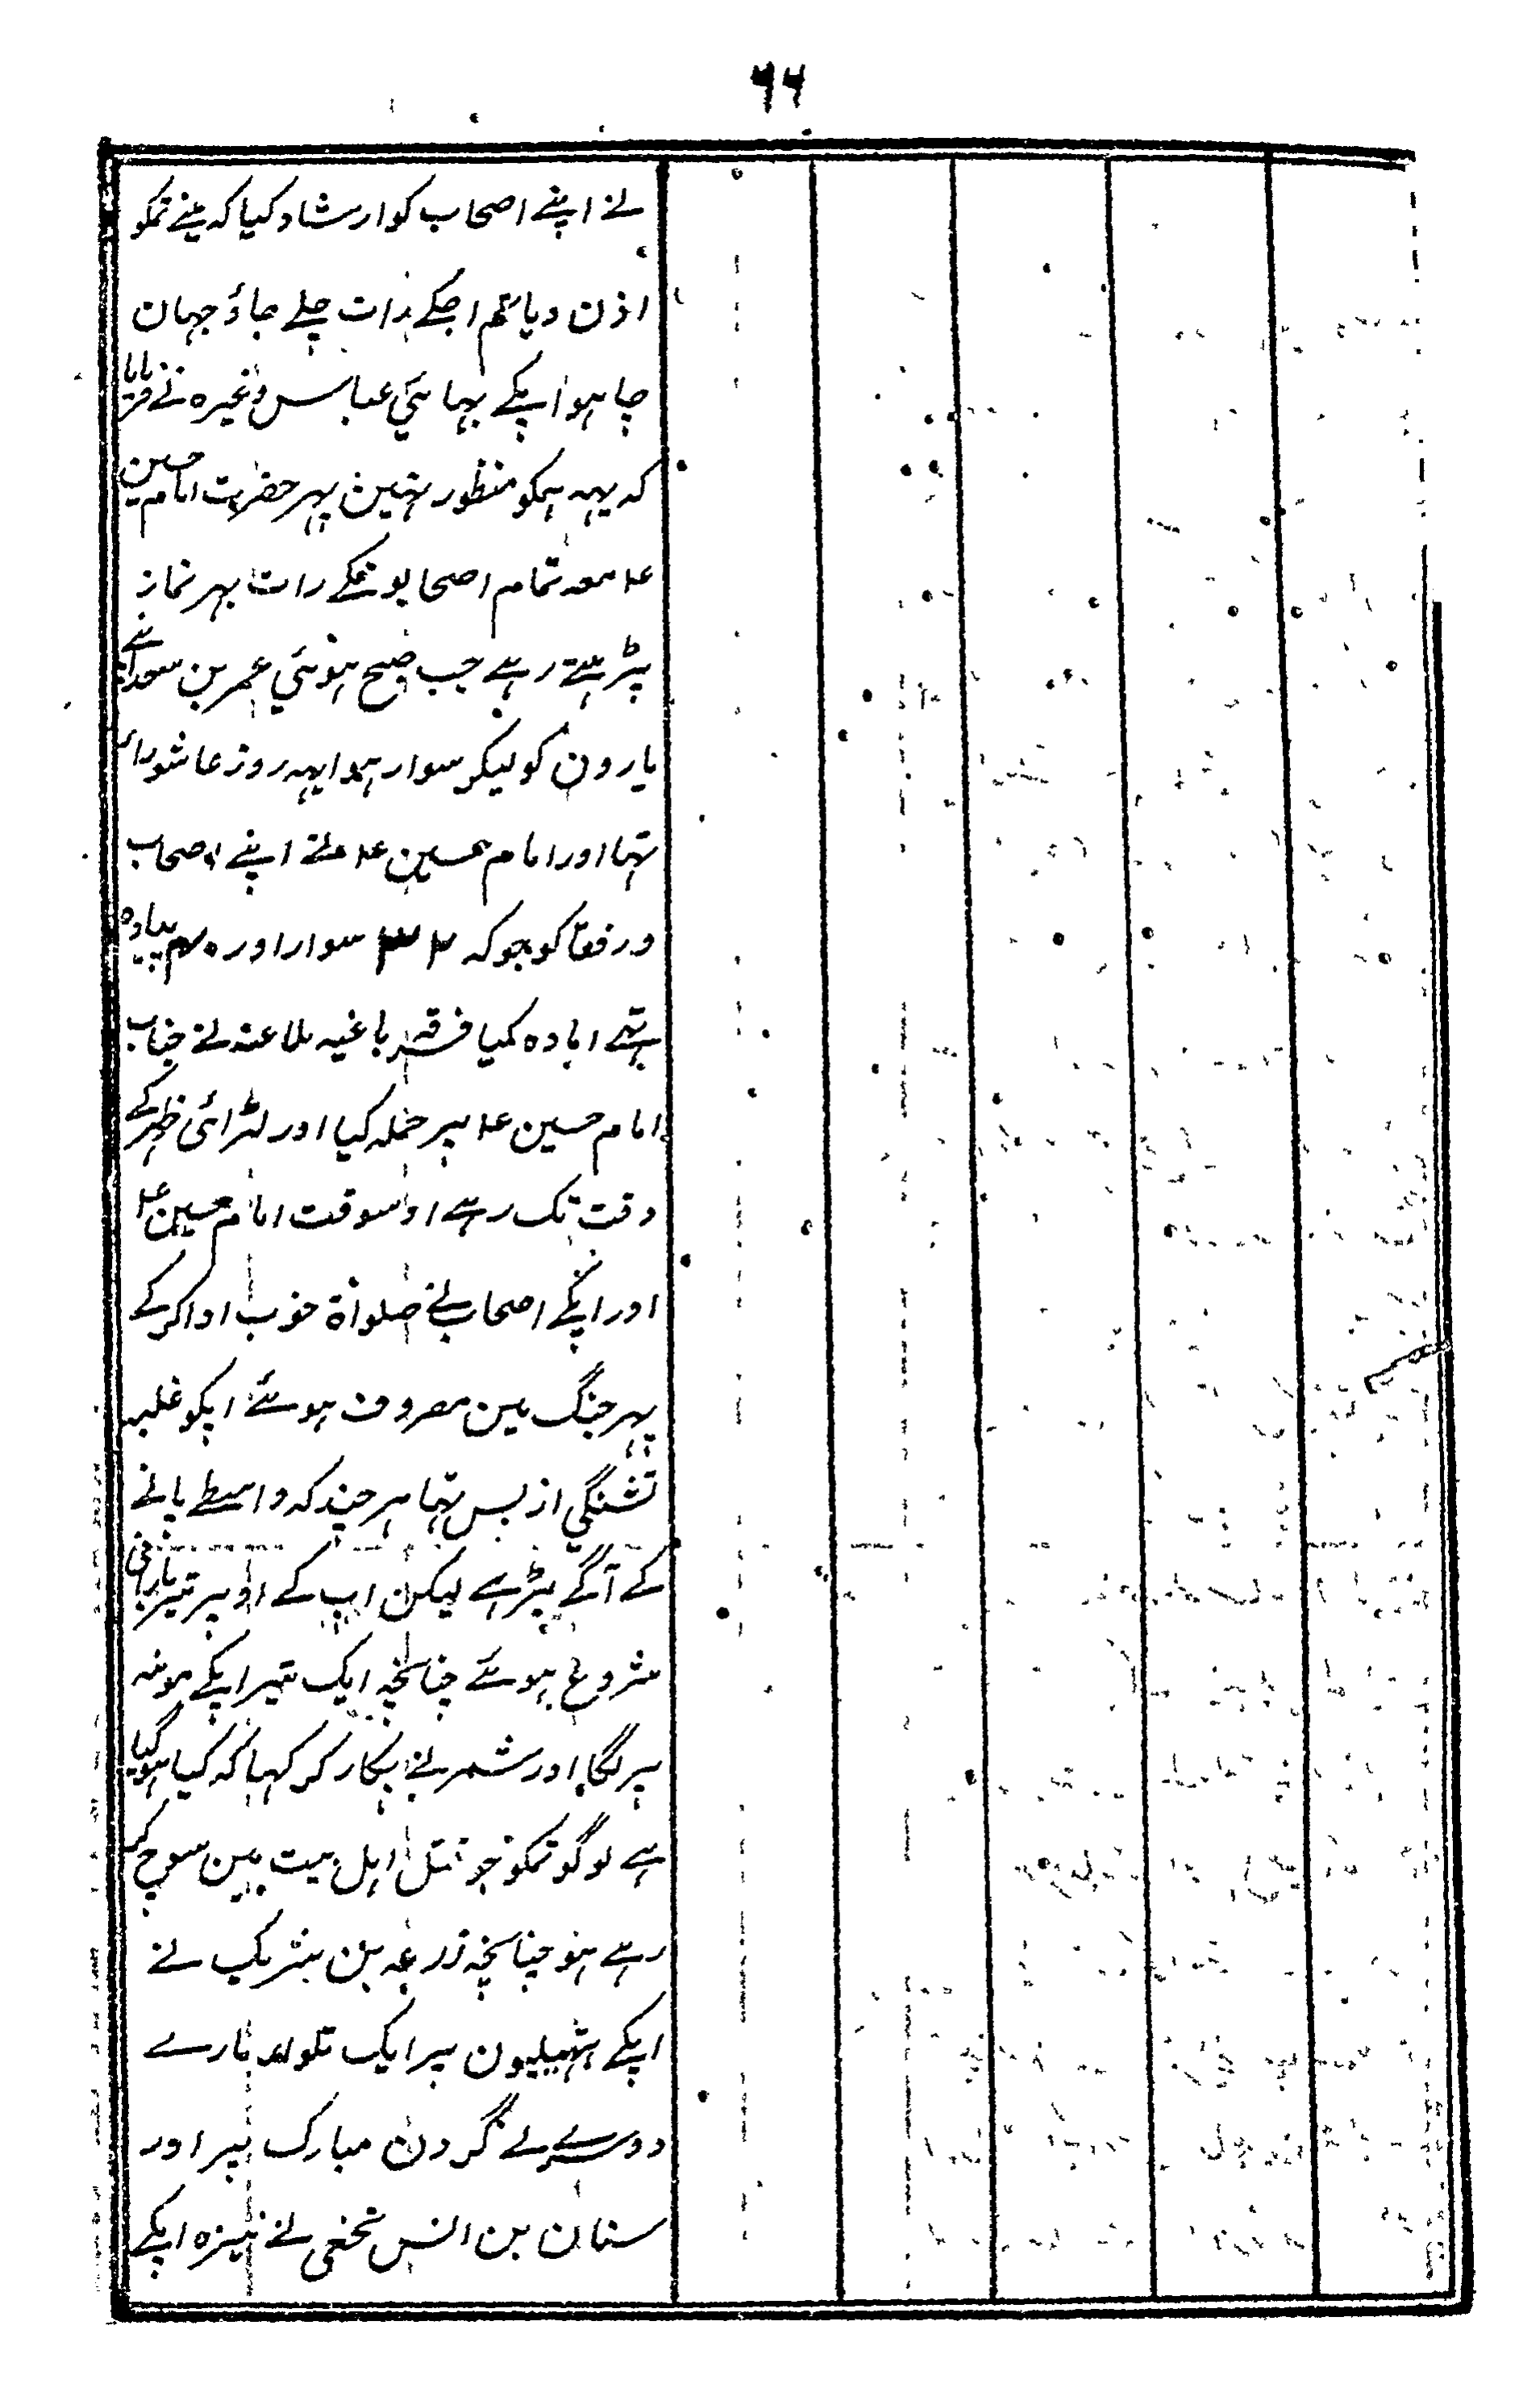 ۶۶
نے اپنے اصحاب کو ارشاد کیا کہ مینے تمکو
اذن دیا تم اجکے رات چلے جاؤ جہان
چاہو اپکے بہائي عباس وغیرہ نے فرمایا
کہ یہہ ہمکو منظور نہین پہر حضرت امام حسین
ع معہ تمام اصحابونکے رات بہر نماز
پڑہتے رہے جب صبح ہوئي عمر بن سعد اپنے
یارون کو لیکر سوار ہوا یہہ روز عاشورا
تہا اور امام حسین ع نے اپنے اصحاب
و رفقا کو جو کہ ۳۲ سوار اور ۴۰ پیادہ
تہے امادہ کیا فرقہ باغیہ ملاعنہ نے جناب
امام حسین ع پر حملہ کیا اور لڑائی ظہر کے
وقت تک رہے اوسوقت امام حسین ع
اور اپکے اصحاب نے صلواۃ خوب ادا کرکے
پہر جنگ مین مصروف ہوئے اپکو غلبہ
تشنگي از بس تہا ہر چند کہ واسطے پانے
کے آگے بڑہے لیکن اپ کے اوپر تیر بارانی
شروع ہوئے چنانچہ ایک تیر اپکے مونہ
پر لگا اور شمر نے پکار کر کہا کہ کیا ہو گیا
ہے لوگو تمکو جو قتل اہل بیت مین سوچ کر
رہے ہو چنانچہ زرعہ بن شریک نے
اپکے ہتہیلیون پر ایک تلوار مارے
دوسرے نے گردن مبارک پر اور
سنان بن انس نخعی نے نیزہ اپکے